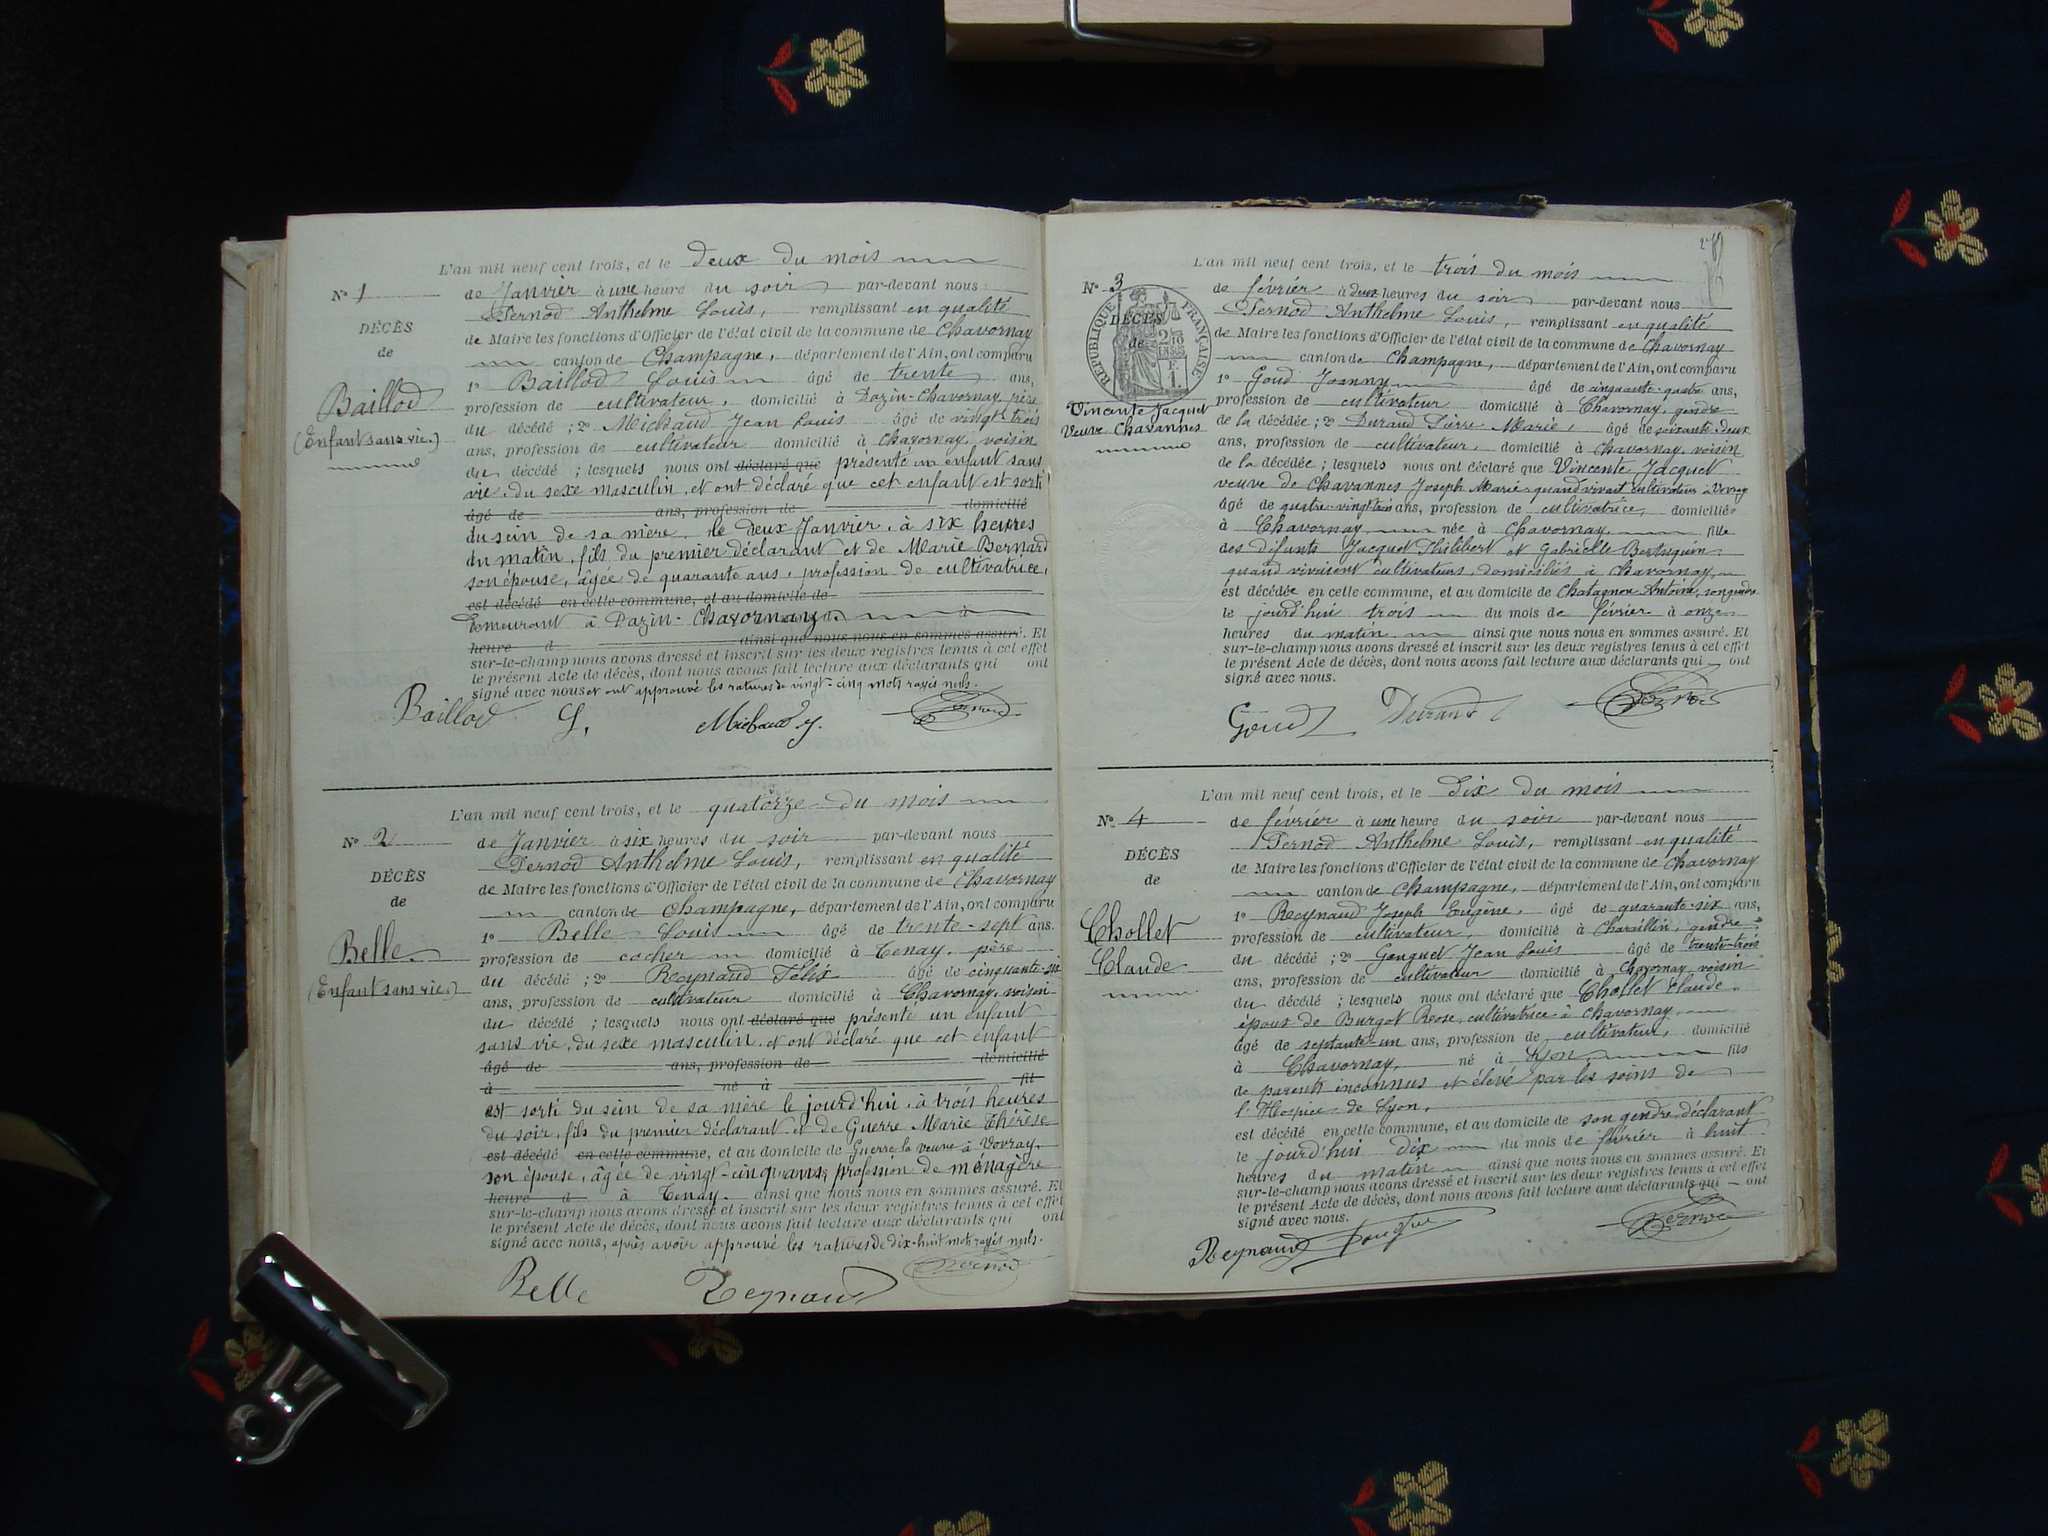 L'an mil neuf cent trois, et le deux du mois
N° 1 de Janvier à une heure du soir par-devant nous
Pernod Anthelme Louis, remplissant en qualité
DÉCÈS
de Maire les fonctions d'Officier de l'état civil de la commune de Chavornay
de
canton de Champagne, département de l'Ain, ont comparu
1° Baillod Louis âgé de trente ans,
Baillod
profession de cultivateur, domicilié à Dazin-Chavornay, père
du décédé ; 2° Michaud Jean Louis âgé de vingt-trois
(Enfant sans vie.)
ans, profession de cultivateur domicilié à Chavornay, voisin
du décédé ; lesquels nous ont déclaré que présenté un enfant sans
vie, du sexe masculin, et ont déclaré que cet enfant est sorti
âgé de ans, profession de domicilié
du sein de sa mère, le deux Janvier, à six heures
du matin, fils du premier déclarant et de Marie Bernard
son épouse, âgée de quarante ans, profession de cultivatrice,
est décédé en cette commune, et au domicile de
demeurant à Dazin-Chavornay à
heure d ainsi que nous nous en sommes assuré. Et
sur-le-champ nous avons dressé et inscrit sur les deux registres tenus à cet effet
le présent Acte de décès, dont nous avons fait lecture aux déclarants qui ont
signé avec nous et ont approuvé les ratures de vingt-cinq mots rayés nuls.
Baillod Michaud J. Pernod
L'an mil neuf cent trois, et le quatorze du mois
N° 2 de Janvier à six heures du soir par-devant nous
Pernod Anthelme Louis, remplissant en qualité
DÉCÈS
de Maire les fonctions d'Officier de l'état civil de la commune de Chavornay
de
canton de Champagne, département de l'Ain, ont comparu
1° Belle Louis âgé de trente-sept ans.
Belle
profession de cocher domicilié à Tenay, père
du décédé ; 2° Reynaud Félix âgé de cinquante-six
(Enfant sans vie.)
ans, profession de cultivateur domicilié à Chavornay, voisin
du décédé ; lesquels nous ont déclaré que présenté un enfant
sans vie, du sexe masculin, et ont déclaré que cet enfant
âgé de ans, profession de domicilié
à né à fil
est sorti du sein de sa mère le jourd'hui, à trois heures
du soir, fils du premier déclarant et de Guerre Marie Thérèse
est décédé en cette commune, et au domicile de Guerre la veuve à Vovray,
son épouse, âgée de vingt-cinq ans, profession de ménagère
heure d à Tenay. ainsi que nous nous en sommes assuré. Et
sur-le-champ nous avons dressé et inscrit sur les deux registres tenus à cet effet
le présent Acte de décès, dont nous avons fait lecture aux déclarants qui ont
signé avec nous, après avoir approuvé les ratures de dix-huit mots rayés nuls.
Belle Reynaud Pernod
L'an mil neuf cent trois, et le trois du mois
N° 3 de février à deux heures du soir par-devant nous
Pernod Anthelme Louis, remplissant en qualité
DÉCÈS
de
RÉPUBLIQUE FRANÇAISE
de Maire les fonctions d'Officier de l'état civil de la commune de Chavornay
canton de Champagne, département de l'Ain, ont comparu
1° Goud Joanny âgé de cinquante-quatre ans,
Vincente Jacquet
Veuve Chavannes
profession de cultivateur domicilié à Chavornay, gendre
de la décédée ; 2° Durand Pierre Marie, âgé de soixante-deux
ans, profession de cultivateur, domicilié à Chavornay, voisin
de la décédée ; lesquels nous ont déclaré que Vincente Jacquet
veuve de Chavannes Joseph Marie quand vivait cultivateur à Vovray
âgé de quatre-vingt trois ans, profession de cultivatrice, domiciliée
à Chavornay née à Chavornay, fille
des défunts Jacquet Philibert et Gabrielle
quand vivaient cultivateurs, domiciliés à Chavornay,
est décédée en cette commune, et au domicile de Chatagnon Antoine, son gendre
le jourd'hui trois du mois de février à onze
heures du matin ainsi que nous nous en sommes assuré. Et
sur-le-champ nous avons dressé et inscrit sur les deux registres tenus à cet effet
le présent Acte de décès, dont nous avons fait lecture aux déclarants qui ont
signé avec nous.
Goud Durand Pernod
L'an mil neuf cent trois, et le Dix du mois
N° 4 de février à une heure du soir par-devant nous
Pernod Anthelme Louis, remplissant en qualité
DÉCÈS
de Maire les fonctions d'Officier de l'état civil de la commune de Chavornay
de
canton de Champagne, département de l'Ain, ont comparu
1° Reynaud Joseph Eugène, âgé de quarante-six ans,
Chollet
Claude
profession de cultivateur, domicilié à Charaillin, gendre
du décédé ; 2° Gouguet Jean Louis âgé de trente-trois
ans, profession de cultivateur domicilié à Chavornay voisin
du décédé ; lesquels nous ont déclaré que Chollet Claude
époux de Burgot Rose, cultivatrice à Chavornay,
âgé de septante-un ans, profession de cultivateur, domicilié
à Chavornay, né à Lyon, fils
de parents inconnus et élevé par les soins de
l'Hospice de Lyon,
est décédé en cette commune, et au domicile de son gendre déclarant
le jourd'hui dix du mois de février à huit
heures du matin ainsi que nous nous en sommes assuré. Et
sur-le-champ nous avons dressé et inscrit sur les deux registres tenus à cet effet
le présent Acte de décès, dont nous avons fait lecture aux déclarants qui ont
signé avec nous.
Reynaud Pernod